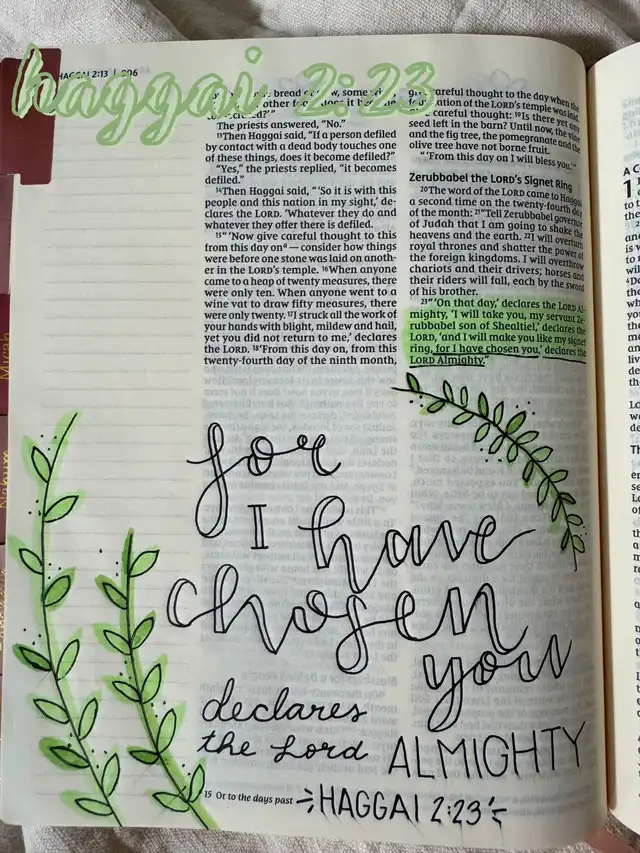 haggai 2:23
HAGGAI 2:13 | 906
bread or stew, some
other food, does it become
The priests answered, "No."
13Then Haggai said, "If a person defiled
by contact with a dead body touches one
of these things, does it become defiled?"
"Yes," the priests replied, "it becomes
defiled."
14Then Haggai said, "'So it is with this
people and this nation in my sight,' de-
clares the LORD. 'Whatever they do and
whatever they offer there is defiled.
15"'Now give careful thought to this
from this day on a — consider how things
were before one stone was laid on anoth-
er in the LORD's temple. 16When anyone
came to a heap of twenty measures, there
were only ten. When anyone went to a
wine vat to draw fifty measures, there
were only twenty. 17I struck all the work of
your hands with blight, mildew and hail,
yet you did not return to me,' declares
the LORD. 18'From this day on, from this
twenty-fourth day of the ninth month,
give careful thought to the day when the
foundation of the LORD's temple was laid.
Give careful thought: 19Is there yet any
seed left in the barn? Until now, the vine
and the fig tree, the pomegranate and the
olive tree have not borne fruit.
"'From this day on I will bless you.'"
Zerubbabel the LORD's Signet Ring
20The word of the LORD came to Haggai
a second time on the twenty-fourth day
of the month: 21"Tell Zerubbabel governor
of Judah that I am going to shake the
heavens and the earth. 22I will overturn
royal thrones and shatter the power of
the foreign kingdoms. I will overthrow
chariots and their drivers; horses and
their riders will fall, each by the sword
of his brother.
23"'On that day,' declares the LORD Al-
mighty, 'I will take you, my servant Ze-
rubbabel son of Shealtiel,' declares the
LORD, 'and I will make you like my signet
ring, for I have chosen you,' declares the
LORD Almighty."
for
I have
chosen
you
declares
the Lord ALMIGHTY
15 Or to the days past
HAGGAI 2:23
Micah
Nahum